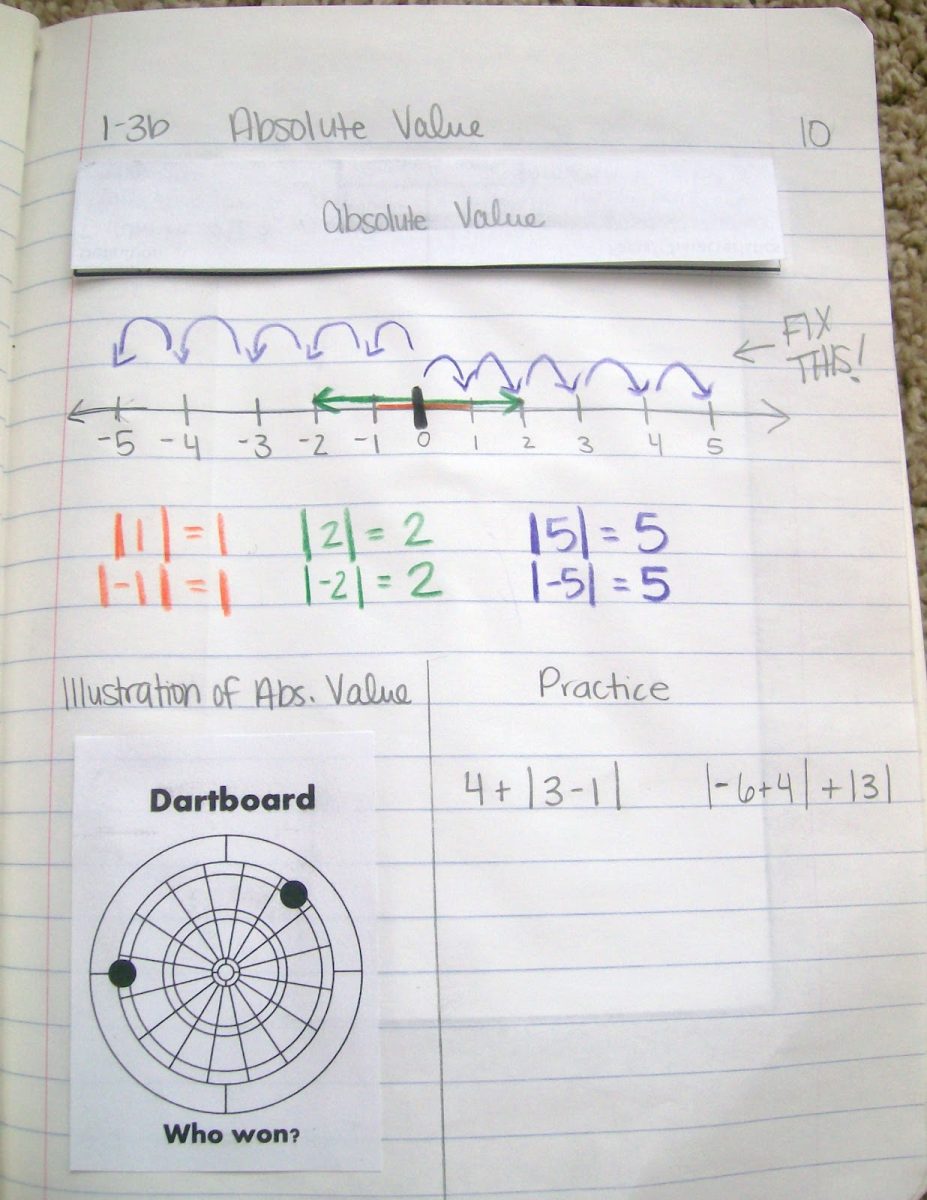 1-3b Absolute Value 10
Absolute Value
FIX
THIS!
-5 -4 -3 -2 -1 0 1 2 3 4 5
|1| = 1 |2| = 2 |5| = 5
|-1| = 1 |-2| = 2 |-5| = 5
Illustration of Abs. Value
Practice
4 + |3-1| |-6+4| + |3|
Dartboard
Who won?